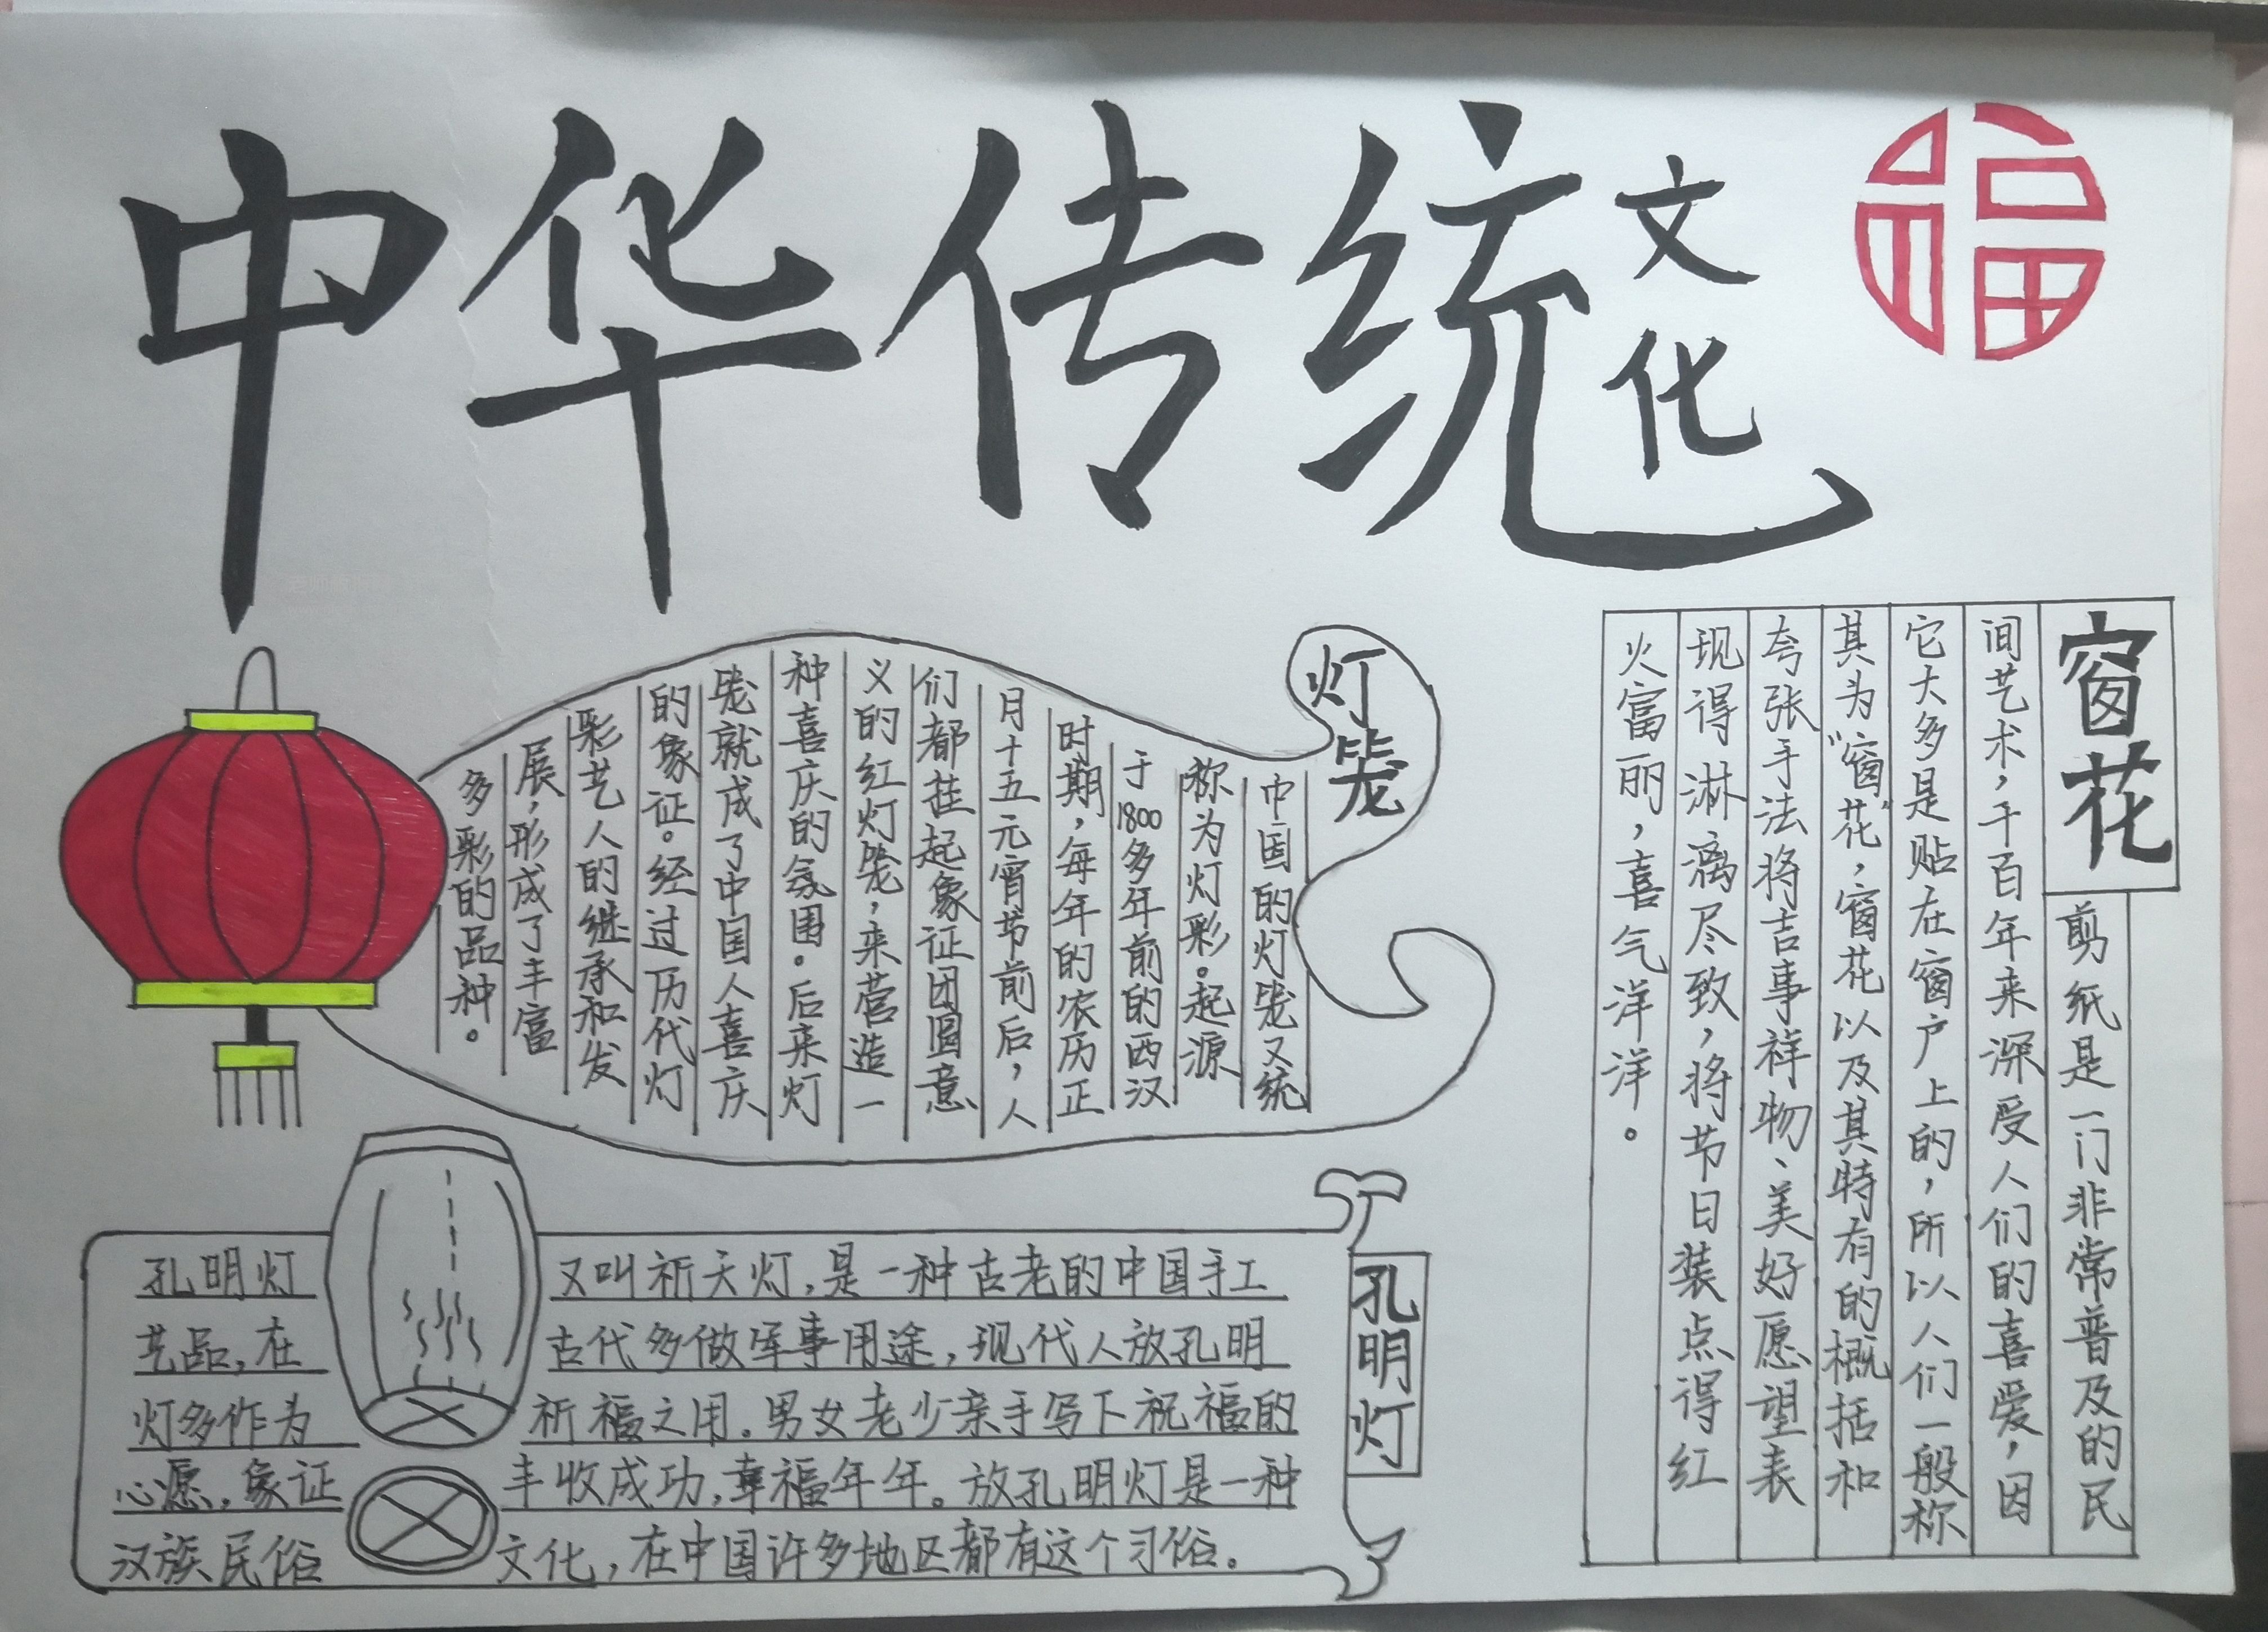 中华传统
文化
福
窗花
剪纸是一门非常普及的民
间艺术，千百年来深受人们的喜爱，因
它大多是贴在窗户上的，所以人们一般称
其为“窗花”，窗花以及其特有的概括和
夸张手法将吉事祥物、美好愿望表
现得淋漓尽致，将节日装点得红
火富丽，喜气洋洋。
灯笼
中国的灯笼又统
称为灯彩。起源
于1800多年前的西汉
时期，每年的农历正
月十五元宵节前后，人
们都挂起象征团圆意
义的红灯笼，来营造一
种喜庆的氛围。后来灯
笼就成了中国人喜庆
的象征。经过历代灯
彩艺人的继承和发
展，形成了丰富
多彩的品种。
孔明灯
孔明灯又叫祈天灯，是一种古老的中国手工
艺品，在古代多做军事用途，现代人放孔明
灯多作为祈福之用。男女老少亲手写下祝福的
心愿，象证丰收成功，幸福年年。放孔明灯是一种
汉族民俗文化，在中国许多地区都有这个习俗。